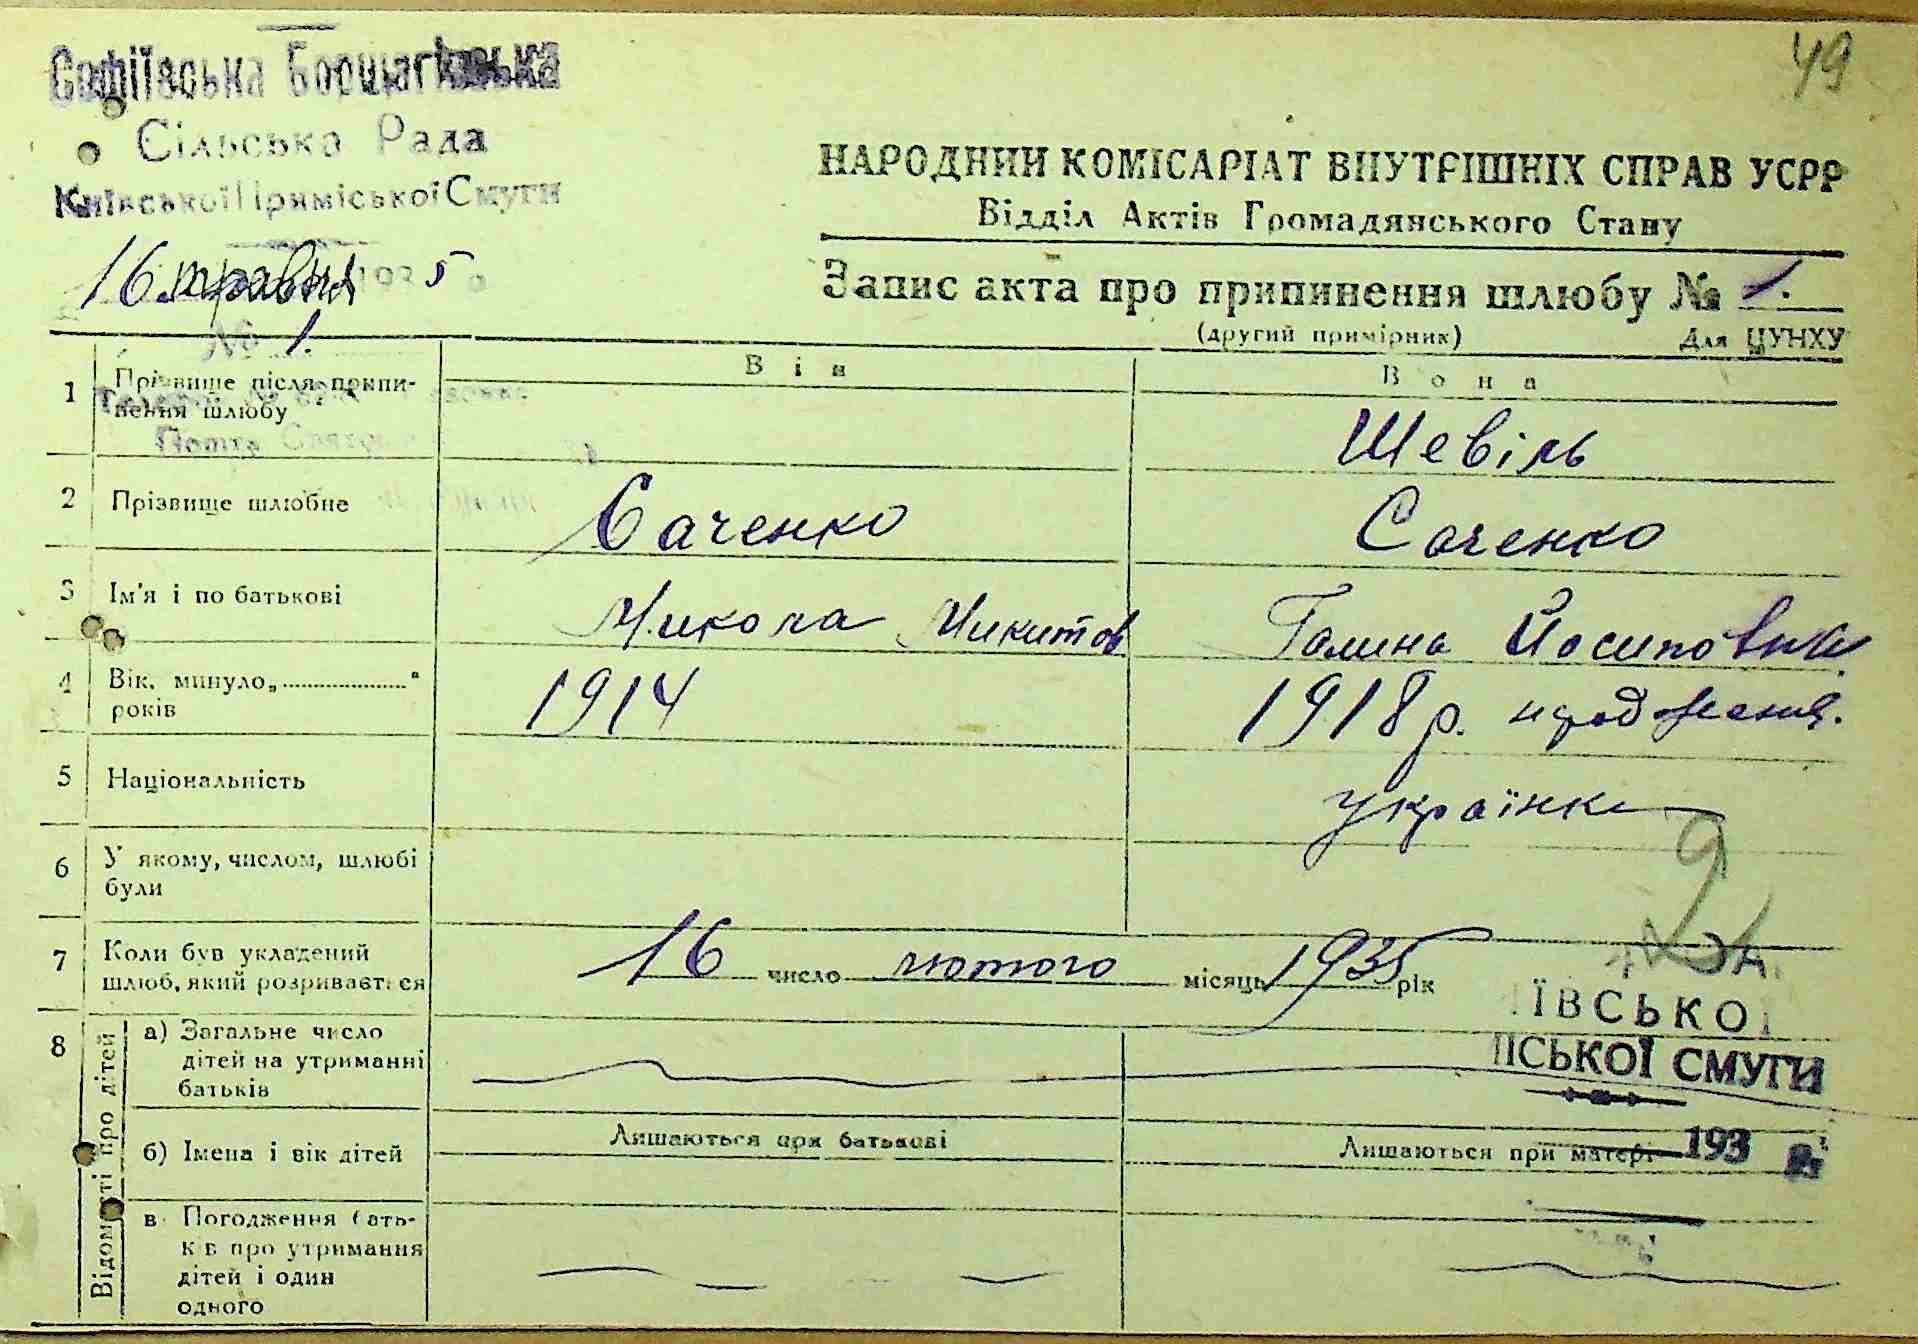 49
Софіївська Борщагівська
Сільська Рада
Київської Приміської Смуги
16 травня 1935
№ 1.
НАРОДНИЙ КОМІСАРІАТ ВНУТРІШНІХ СПРАВ УСРР
Відділ Актів Громадянського Стану
Запис акта про припинення шлюбу № 1.
(другий примірник) Для ЦУНХУ
Він Вона
1 Прізвище після припи-
нення шлюбу Шевіль
Пошта
2 Прізвище шлюбне Саченко Саченко
3 Ім'я і по батькові Микола Микитов Галина Йосиповна
4 Вік. минуло „ “
років 1914 1918 р. народження.
5 Національність українка
6 У якому, числом, шлюбі
були
7 Коли був укладений
шлюб, який розривається 16 число лютого місяць 1935 рік
8 Відомості про дітей
а) Загальне число
дітей на утриманні
батьків
ЇВСЬКОЇ
ІСЬКОЇ СМУГИ
193 р.
б) Імена і вік дітей Лишаються при батькові Лишаються при матері
в Погодження бать-
ків про утримання
дітей і один
одного